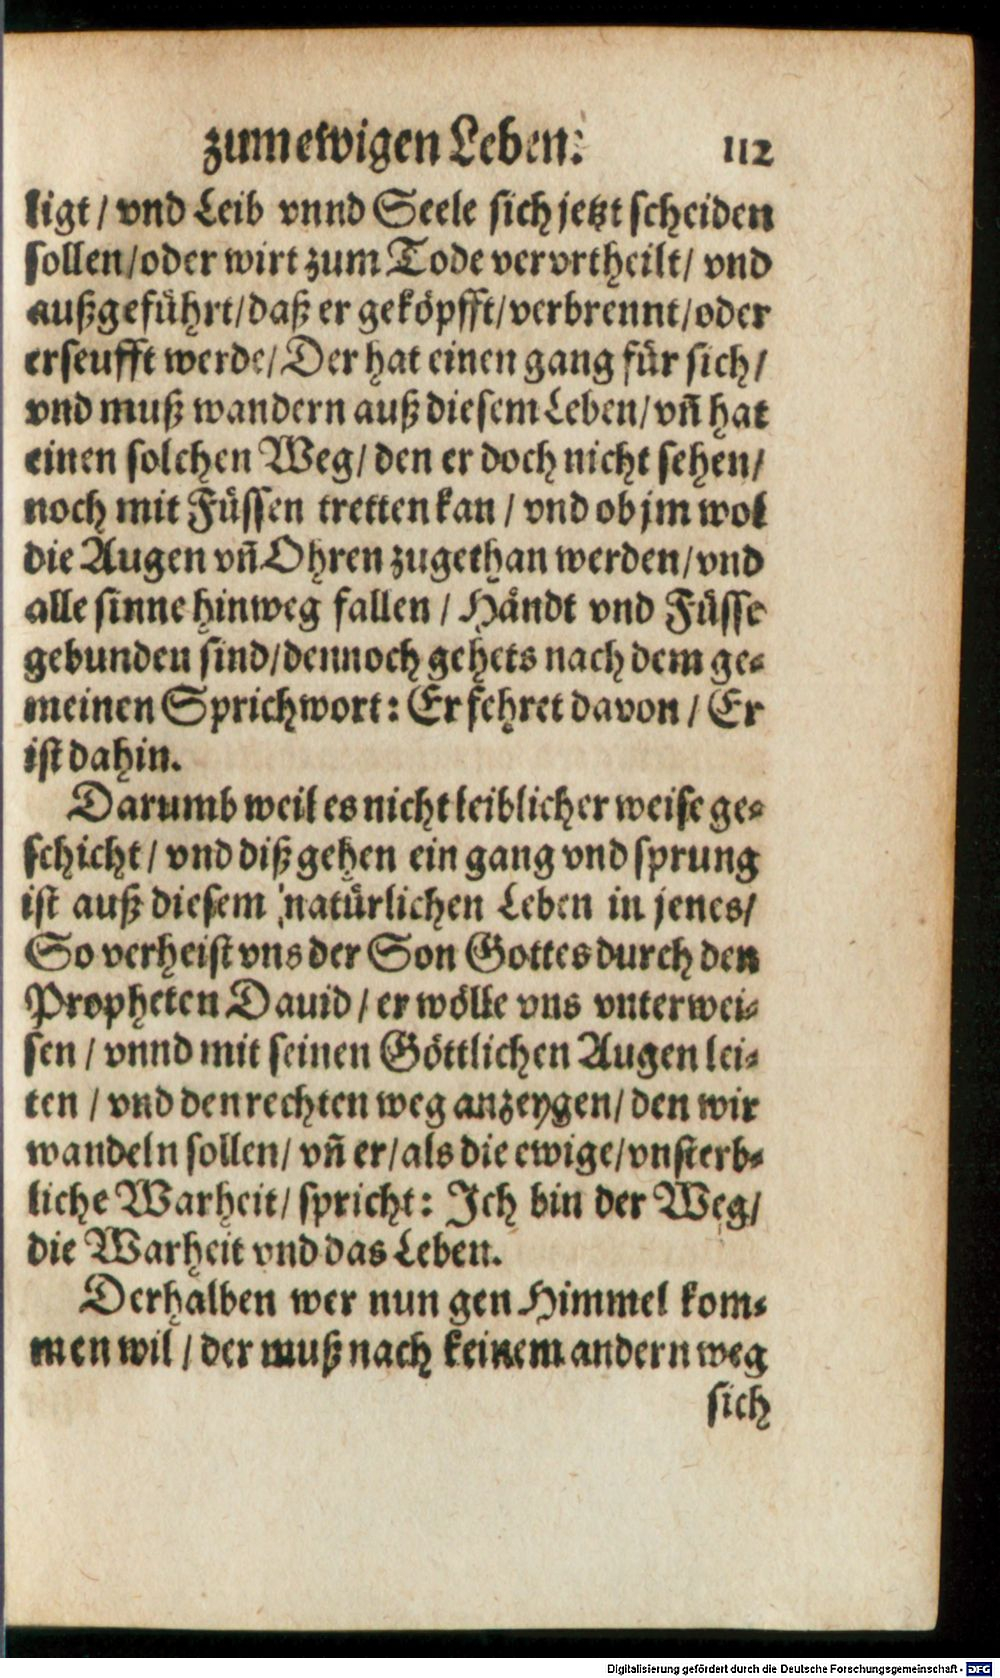 zum ewigen Leben. 112
ligt / vnd Leib vnnd Seele sich jetzt scheiden
sollen / oder wirt zum Tode verurtheilt / vnd
außgeführt / daß er geköpfft / verbrennt / oder
erseufft werde / Der hat einen gang für sich /
vnd muß wandern auß diesem Leben / vñ hat
einen solchen Weg / den er doch nicht sehen /
noch mit Füssen tretten kan / vnd ob jm wol
die Augen vñ Ohren zugethan werden / vnd
alle sinne hinweg fallen / Händt vnd Füsse
gebunden sind / dennoch gehets nach dem ge-
meinen Sprichwort: Er fehret davon / Er
ist dahin.
Darumb weil es nicht leiblicher weise ge-
schicht / vnd diß gehen ein gang vnd sprung
ist auß diesem natürlichen Leben in jenes /
So verheist vns der Son Gottes durch den
Propheten Dauid / er wölle vns vnterwei-
sen / vnnd mit seinen Göttlichen Augen lei-
ten / vnd den rechten weg anzeygen / den wir
wandeln sollen / vñ er / als die ewige / vnsterb-
liche Warheit / spricht: Ich bin der Weg /
die Warheit vnd das Leben.
Derhalben wer nun gen Himmel kom-
men wil / der muß nach keinem andern weg
sich
Digitalisierung gefördert durch die Deutsche Forschungsgemeinschaft - DFG